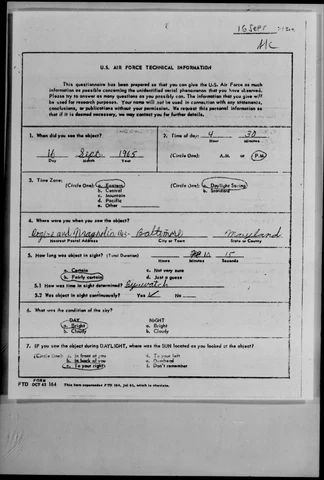 16 Sept
U.S. AIR FORCE TECHNICAL INFORMATION
This questionnaire has been prepared so that you can give the U.S. Air Force as much
information as possible concerning the unidentified aerial phenomenon that you have observed.
Please try to answer as many questions as you possibly can. The information that you give will
be used for research purposes. Your name will not be used in connection with any statements,
conclusions, or publications without your permission. We request this personal information so
that if it is deemed necessary, we may contact you for further details.
1. When did you see the object?
16 Sept. 1965
Day Month Year
2. Time of day: 4 30
Hour Minutes
(Circle One): A.M. or P.M.
3. Time Zone:
(Circle One): a. Eastern
b. Central
c. Mountain
d. Pacific
e. Other
(Circle One): a. Daylight Saving
b. Standard
4. Where were you when you saw the object?
and Magnolia Baltimore Maryland
Nearest Postal Address City or Town State or County
5. How long was object in sight? (Total Duration) 15
Hours Minutes Seconds
a. Certain c. Not very sure
b. Fairly certain d. Just a guess
5.1 How was time in sight determined?
5.2 Was object in sight continuously? Yes ✓ No
6. What was the condition of the sky?
DAY NIGHT
a. Bright a. Bright
b. Cloudy b. Cloudy
7. IF you saw the object during DAYLIGHT, where was the SUN located as you looked at the object?
(Circle One): a. In front of you d. To your left
b. In back of you e. Overhead
c. To your right f. Don't remember
FORM
FTD OCT 62 164 This form supersedes FTD 164, Jul 61, which is obsolete.